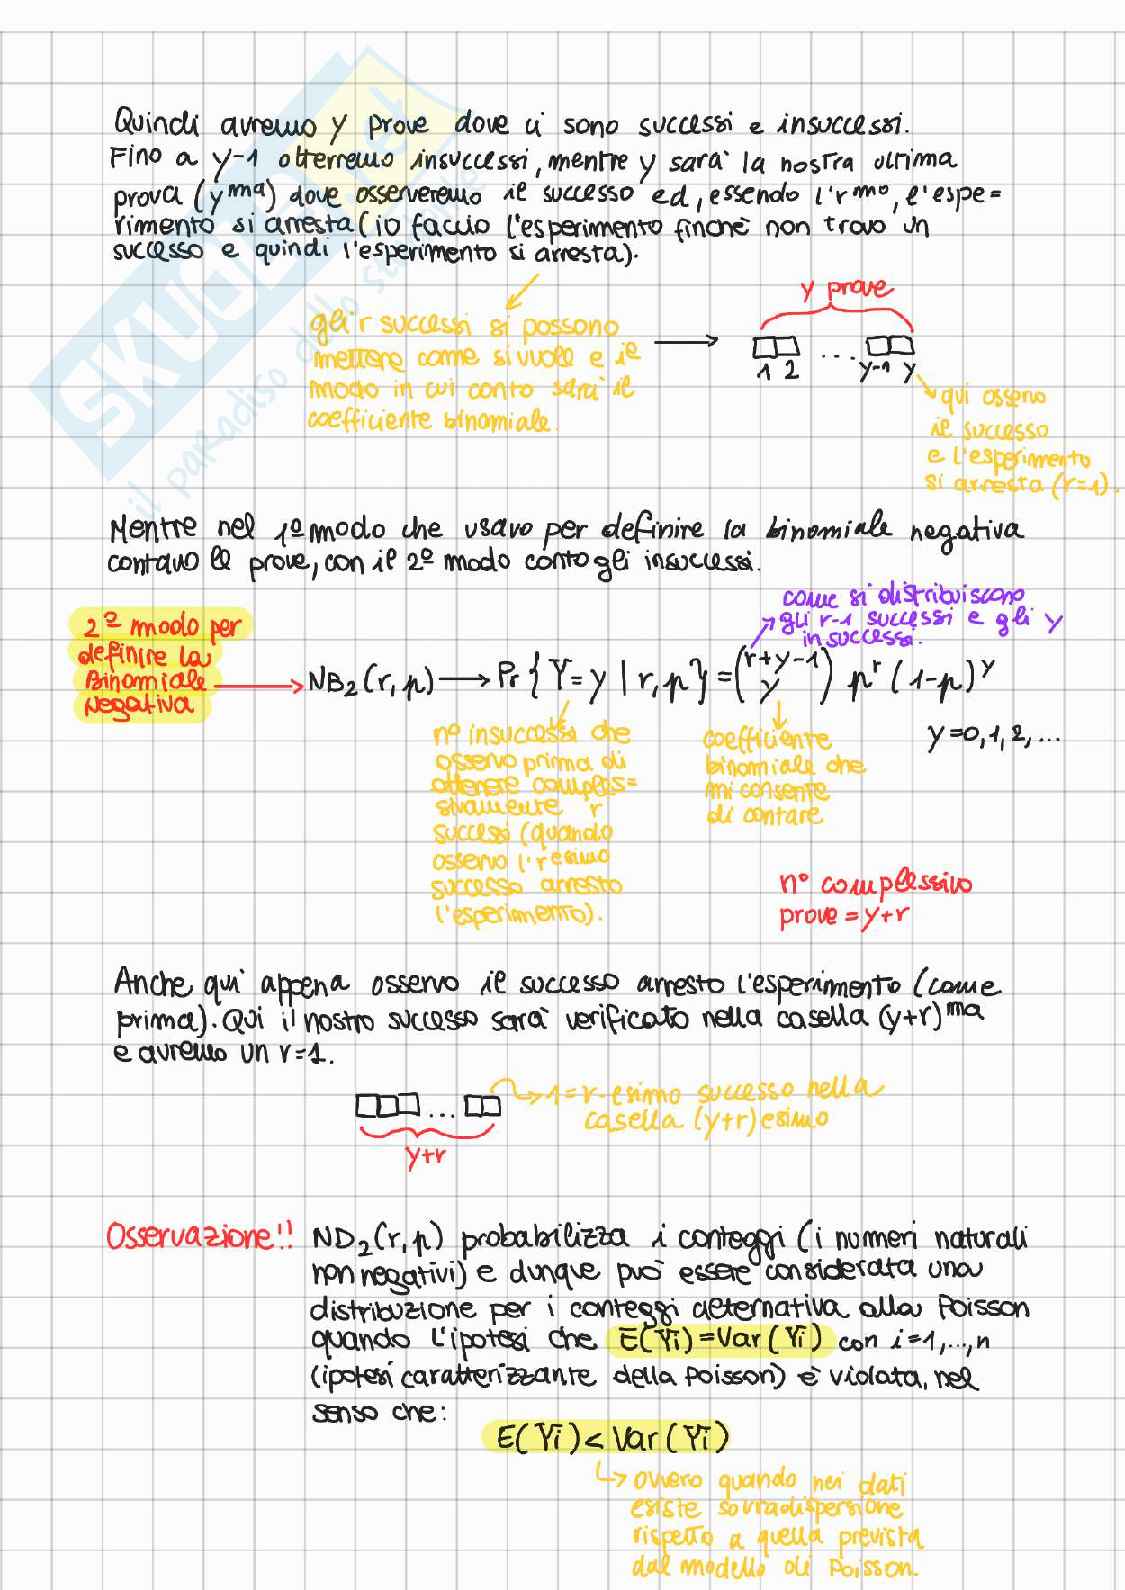 Quindi avremo y prove dove ci sono successi e insuccessi.
Fino a y-1 otterremo insuccessi, mentre y sarà la nostra ultima
prova (y ma) dove osserveremo il successo ed, essendo l'r mo, l'espe=
rimento si arresta (io faccio l'esperimento finché non trovo un
successo e quindi l'esperimento si arresta).
gli r successi si possono
mettere come si vuole e il
modo in cui conto sarà il
coefficiente binomiale.
y prove
1 2 ... y-1 y
qui osservo
il successo
e l'esperimento
si arresta (r=1).
Mentre nel 1º modo che usavo per definire la binomiale negativa
contavo le prove, con il 2º modo conto gli insuccessi.
come si distribuiscono
gli r-1 successi e gli y
insuccessi.
2º modo per
definire la
Binomiale
Negativa
NB₂(r,p) → Pr{Y=y | r,p} = (r+y-1 y) pʳ (1-p)ʸ
y=0,1,2,...
nº insuccessi che
osservo prima di
ottenere comples=
sivamente r
successi (quando
osservo l'r esimo
successo arresto
l'esperimento).
coefficiente
binomiale che
mi consente
di contare
n° complessivo
prove = y+r
Anche qui appena osservo il successo arresto l'esperimento (come
prima). Qui il nostro successo sarà verificato nella casella (y+r) ma
e avremo un r=1.
1 = r-esimo successo nella
casella (y+r)esimo
...
y+r
Osservazione!! ND₂(r,p) probabilizza i conteggi (i numeri naturali
non negativi) e dunque può essere considerata una
distribuzione per i conteggi alternativa alla Poisson
quando l'ipotesi che E(Yi)=Var(Yi) con i=1,...,n
(ipotesi caratterizzante della Poisson) è violata, nel
senso che:
E(Yi)<Var(Yi)
ovvero quando nei dati
esiste sovradispersione
rispetto a quella prevista
dal modello di Poisson.
SKUOLA.net
il paradiso dello studente